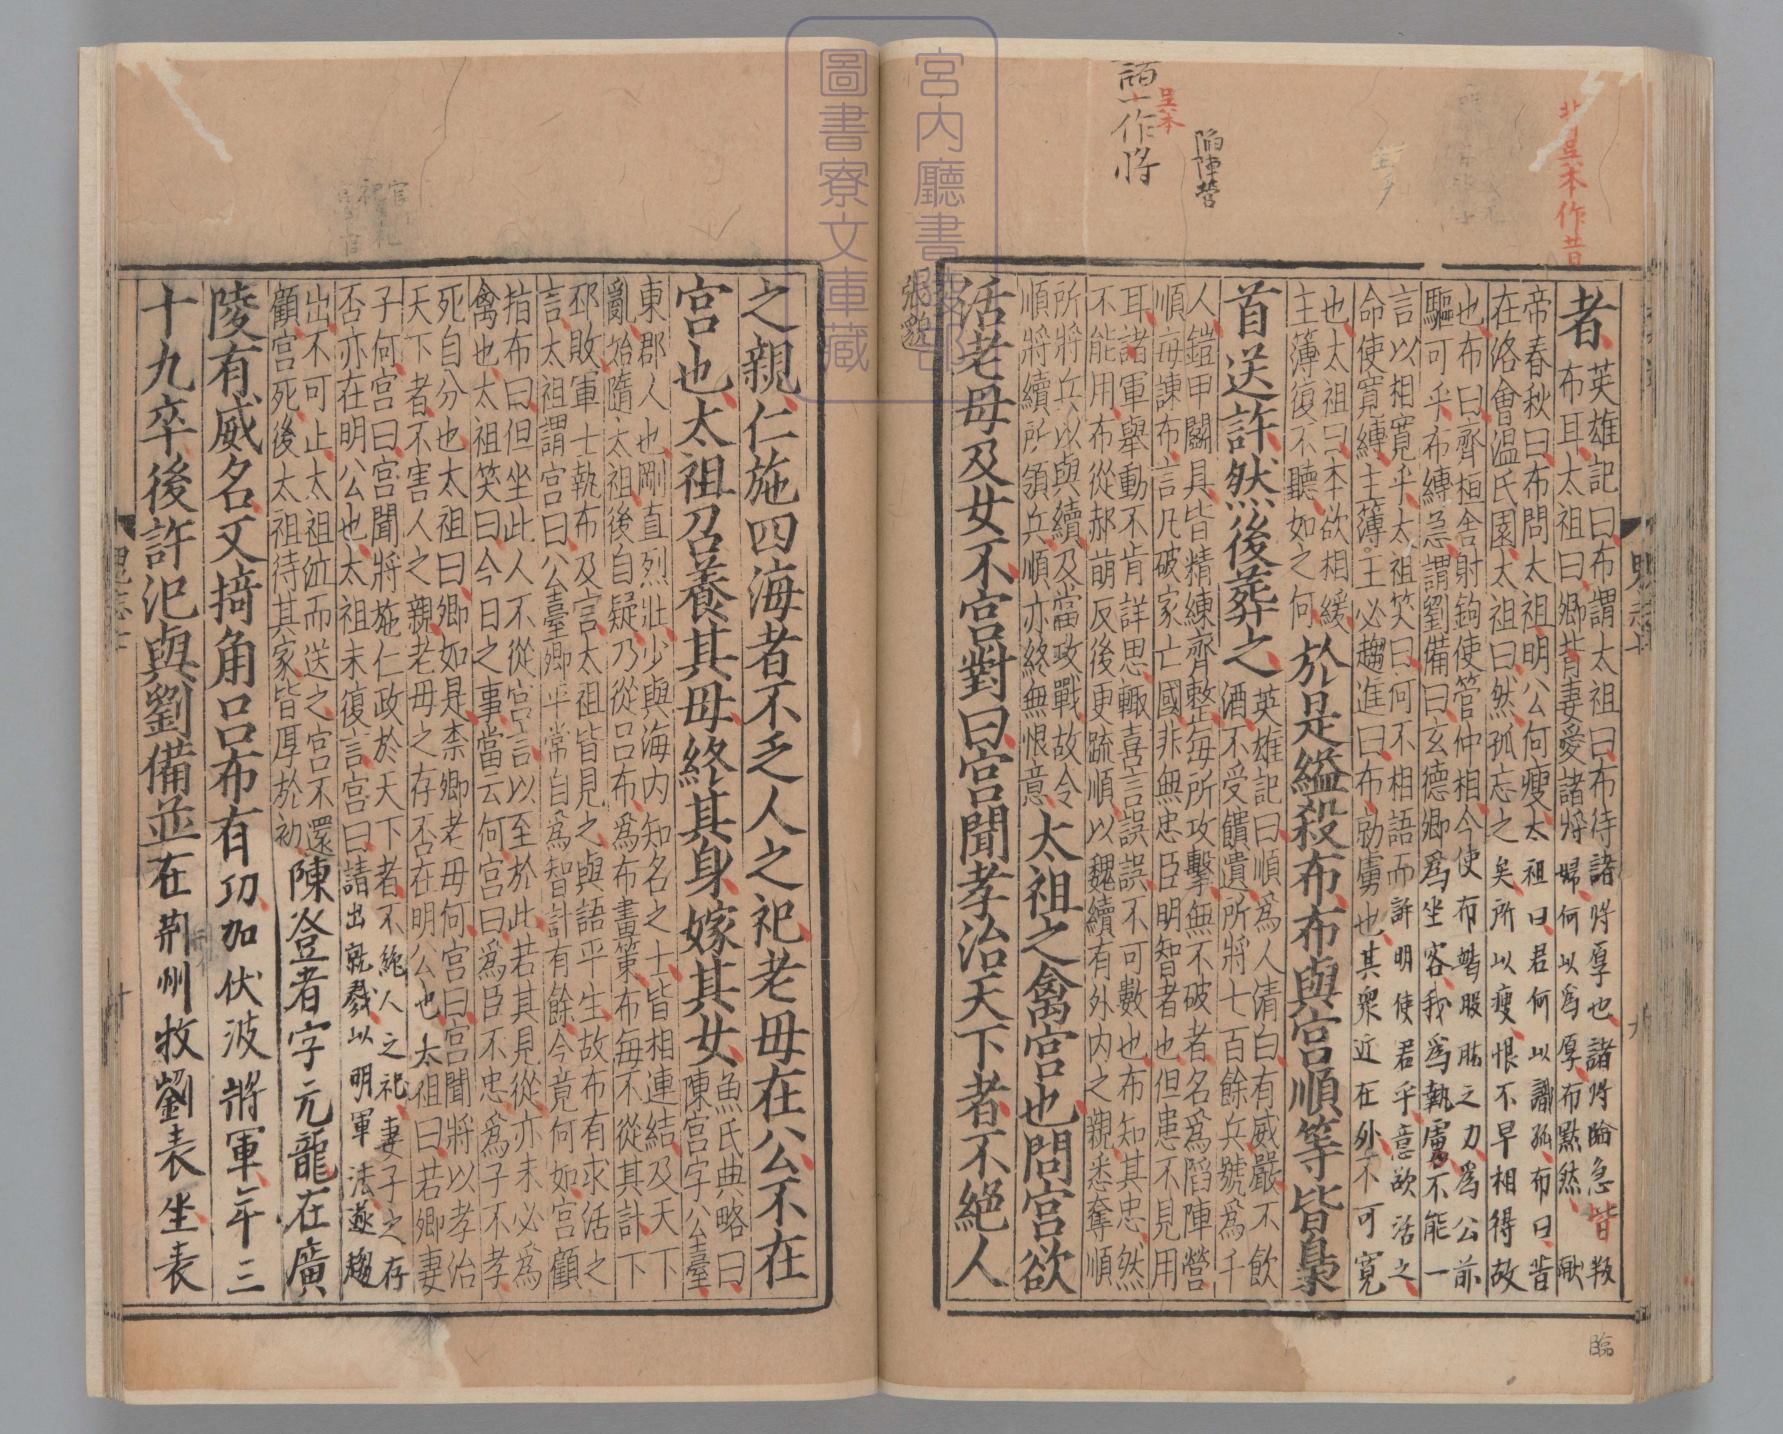 者英雄記曰布謂太祖曰布待諸將厚也諸將臨急皆叛
布耳太祖曰卿背妻愛諸將婦何以為厚布默然獻
帝春秋曰布問太祖明公何瘦太祖曰君何以識孤布曰昔
在洛會温氏園太祖曰然孤忘之矣所以瘦恨不早相得故
也布曰齊桓舍射鉤使管仲相今使布竭股肱之力為公前
驅可乎布縛急謂劉備曰玄德卿為坐客我為執虜不能一
言以相寛乎太祖笑曰何不相語而訴明使君乎意欲活之
命使寛縛主薄王必趨進曰布勍虜也其衆近在外不可寛
也太祖曰本欲相緩
主薄復不聽如之何
於是縊殺布布與宫順等皆梟
首送許然後葬之
英雄記曰順為人清白有威嚴不飲
酒不受饋遺所將七百餘兵號為千
人鎧甲鬬具皆精練齊整每所攻擊無不破者名為陷陣營
順每諫布言凡破家亡國非無忠臣明智者也但患不見用
耳諸軍舉動不肯詳思輙喜言誤誤不可數也布知其忠然
不能用布從郝萌反後更疏順以魏續有外内之親悉奪順
所將兵以與續及當攻戰故令
順將續所領兵順亦終無恨意
太祖之禽宫也問宫欲
活老母及女不宫對曰宫聞孝治天下者不絶人
之親仁施四海者不乏人之祀老母在公不在
宫也太祖召養其母終其身嫁其女
魚氏典略曰
陳宫字公臺
東郡人也剛直烈壯少與海内知名之士皆相連結及天下
亂始隨太祖後自疑乃從吕布為布畫策布每不從其計下
邳敗軍士執布及宫太祖皆見之與語平生故布有求活之
言太祖謂宫曰公臺卿平常自為智計有餘今竟何如宫顧
指布曰但坐此人不從宫言以至於此若其見從亦未必為
禽也太祖笑曰今日之事當云何宫曰為臣不忠為子不孝
死自分也太祖曰卿如是柰卿老母何宫曰宫聞將以孝治
天下者不害人之親老母之存否在明公也太祖曰若卿妻
子何宫曰宫聞將施仁政於天下者不絶人之祀妻子之存
否亦在明公也太祖未復言宫曰請出就戮以明軍法遂趨
出不可止太祖泣而送之宫不還
顧宫死後太祖待其家皆厚於初
陳登者字元龍在廣
陵有威名又掎角吕布有功加伏波將軍年三
十九卒後許汜與劉備並在荆州牧劉表坐表
陷陣營
作將
呈本
呈本作昔
臨
張貌
宮内廳書陵部
圖書寮文庫藏